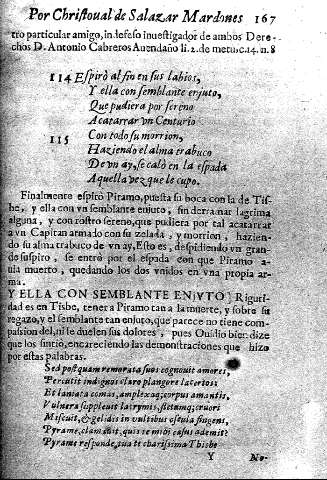 Por Christoual de Salazar Mardones 167
tro particular amigo, indefeso inuestigador de ambos Dere-
chos D. Antonio Cabreros Auendaño li. 2. de metu c. 14. n. 8
114 Espirò al fin en sus labios,
Y ella con semblante enjuto,
Que pudiera por sereno
Acatarrar vn Centurio
115 Con todo su morrion,
Haziendo el alma trabuco
De vn ay, se calò en la espada
Aquella vez que le cupo.
Finalmente espirò Piramo, puesta su boca con la de Tis-
be, y ella con vn semblante enjuto, sin derramar lagrima
alguna, y con rostro sereno, que pudiera por tal acatarrar
a vn Capitan armado con su zelada, y morrion, hazien-
do su alma trabuco de vn ay, Esto es, despidiendo vn gran-
de suspiro, se entrò por el espada con que Piramo a-
uia muerto, quedando los dos vnidos en vna propia ar-
ma.
Y ELLA CON SEMBLANTE ENJVTO) Riguri-
dad es en Tisbe, tener a Piramo tan a la muerte, y sobre su
regazo, y el semblante tan enjuto, que parece no tiene com-
passion del, ni le duelen sus dolores, pues Ouidio bien dize
que los sintio, encareciendo las demonstraciones que hizo
por estas palabras.
Sed postquam remorata suos cognouit amores,
Percutit indignos claro plangore lacertos:
Et laniata comas, amplexaq; corpus amantis,
Vulnera suppleuit lacrymis, fletumq; cruori
Miscuit, & gelidis in vultibus oscula fingens,
Pyrame, clamauit, quis te mihi casus ademit?
Pyrame responde, tua te charissima Thisbe
Y No-